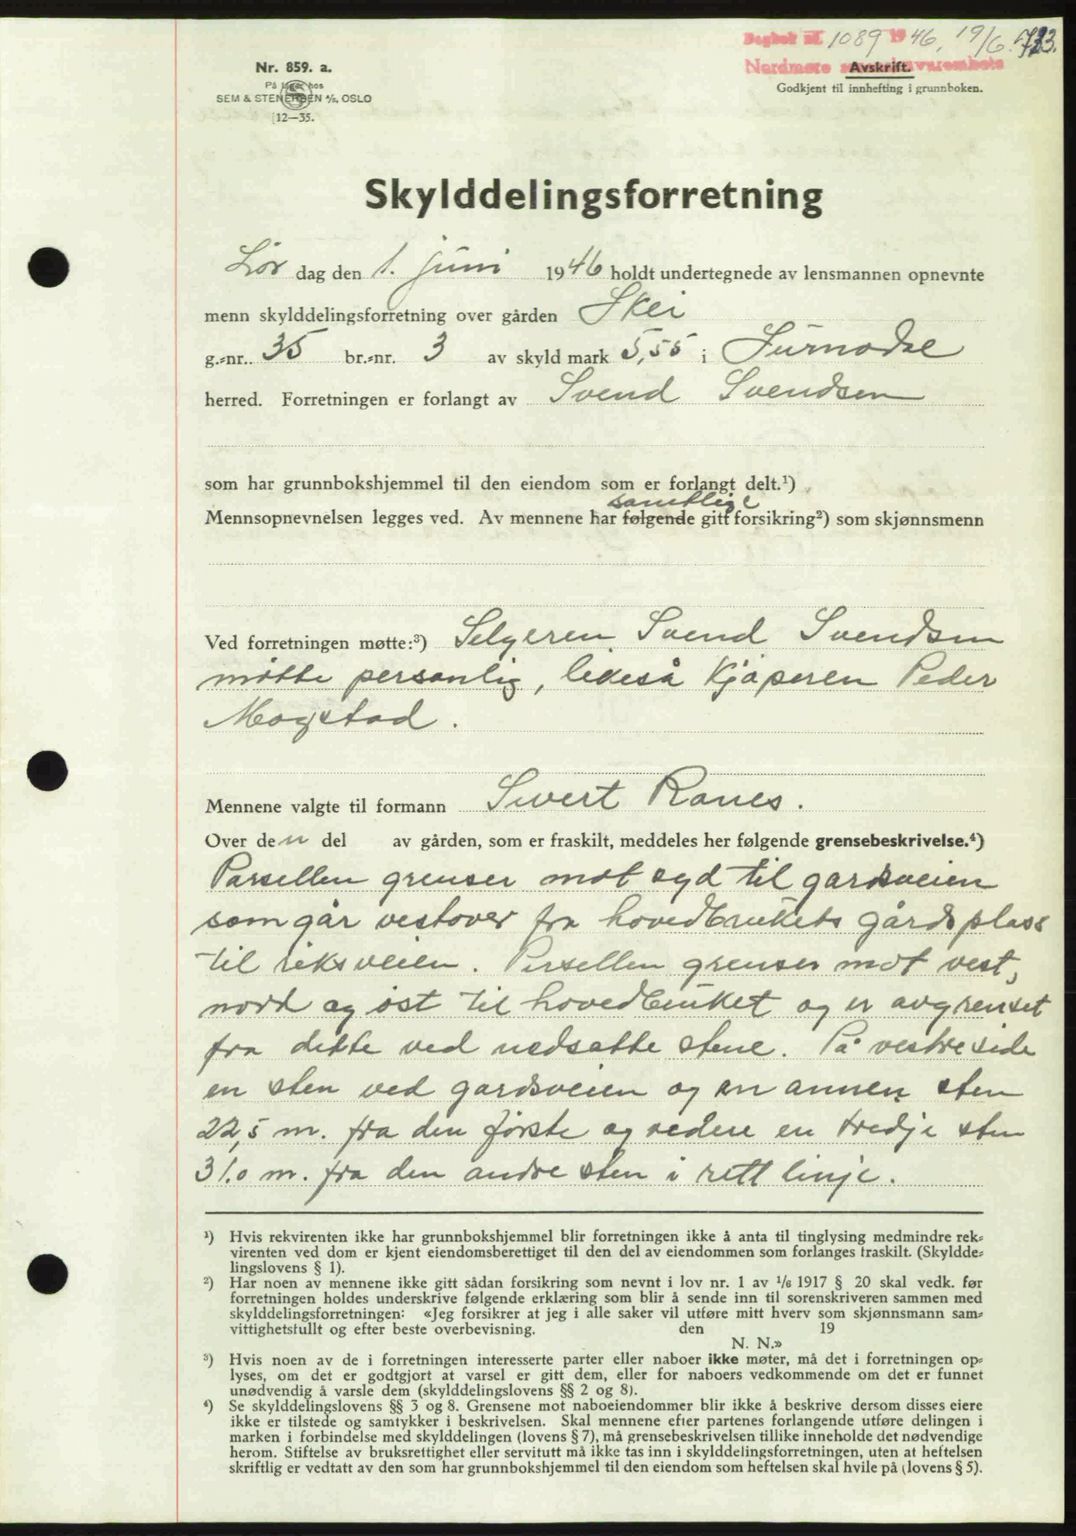 Dagbok nr. 1089 1946, 19/6. 733.
Nordmøre sorenskriverembete
Avskrift.
Godkjent til innhefting i grunnboken.
Nr. 859. a.
På lager hos
SEM & STENERSEN A/S, OSLO
12—35.
Skylddelingsforretning
Lør dag den 1. juni 1946 holdt undertegnede av lensmannen opnevnte
menn skylddelingsforretning over gården Skei
g.-nr. 35 br.-nr. 3 av skyld mark 5,55 i Surnadal
herred. Forretningen er forlangt av Svend Svendsen
som har grunnbokshjemmel til den eiendom som er forlangt delt.¹)
samtlige
Mennsopnevnelsen legges ved. Av mennene har følgende gitt forsikring²) som skjønnsmenn
Ved forretningen møtte:³) Selgeren Svend Svendsen
møtte personlig, likeså kjøperen Peder
Mogstad.
Mennene valgte til formann Sivert Ranes.
Over den del av gården, som er fraskilt, meddeles her følgende grensebeskrivelse.⁴)
Parsellen grenser mot syd til gardsveien
som går vestover fra hovedbrukets gårdsplass
til riksveien. Parsellen grenser mot vest,
nord og øst til hovedbruket og er avgrenset
fra dette ved nedsatte stene. På vestre side
en sten ved gardsveien og en annen sten
22,5 m. fra den første og videre en tredje sten
31.0 m. fra den andre sten i rett linje.
¹) Hvis rekvirenten ikke har grunnbokshjemmel blir forretningen ikke å anta til tinglysing medmindre rek-
virenten ved dom er kjent eiendomsberettiget til den del av eiendommen som forlanges fraskilt. (Skyldde-
lingslovens § 1).
²) Har noen av mennene ikke gitt sådan forsikring som nevnt i lov nr. 1 av 1/6 1917 § 20 skal vedk. før
forretningen holdes underskrive følgende erklæring som blir å sende inn til sorenskriveren sammen med
skylddelingsforretningen: «Jeg forsikrer at jeg i alle saker vil utføre mitt hverv som skjønnsmann sam-
vittighetsfullt og efter beste overbevisning. den 19
N. N.»
³) Hvis noen av de i forretningen interesserte parter eller naboer ikke møter, må det i forretningen op-
lyses, om det er godtgjort at varsel er gitt dem, eller for naboers vedkommende om det er funnet
unødvendig å varsle dem (skylddelingslovens §§ 2 og 8).
⁴) Se skylddelingslovens §§ 3 og 8. Grensene mot naboeiendommer blir ikke å beskrive dersom disses eiere
ikke er tilstede og samtykker i beskrivelsen. Skal mennene efter partenes forlangende utføre delingen i
marken i forbindelse med skylddelingen (lovens § 7), må grensebeskrivelsen tillike inneholde det nødvendige
herom. Stiftelse av bruksrettighet eller servitutt må ikke tas inn i skylddelingsforretningen, uten at heftelsen
skriftlig er vedtatt av den som har grunnbokshjemmel til den eiendom som heftelsen skal hvile på (lovens § 5).